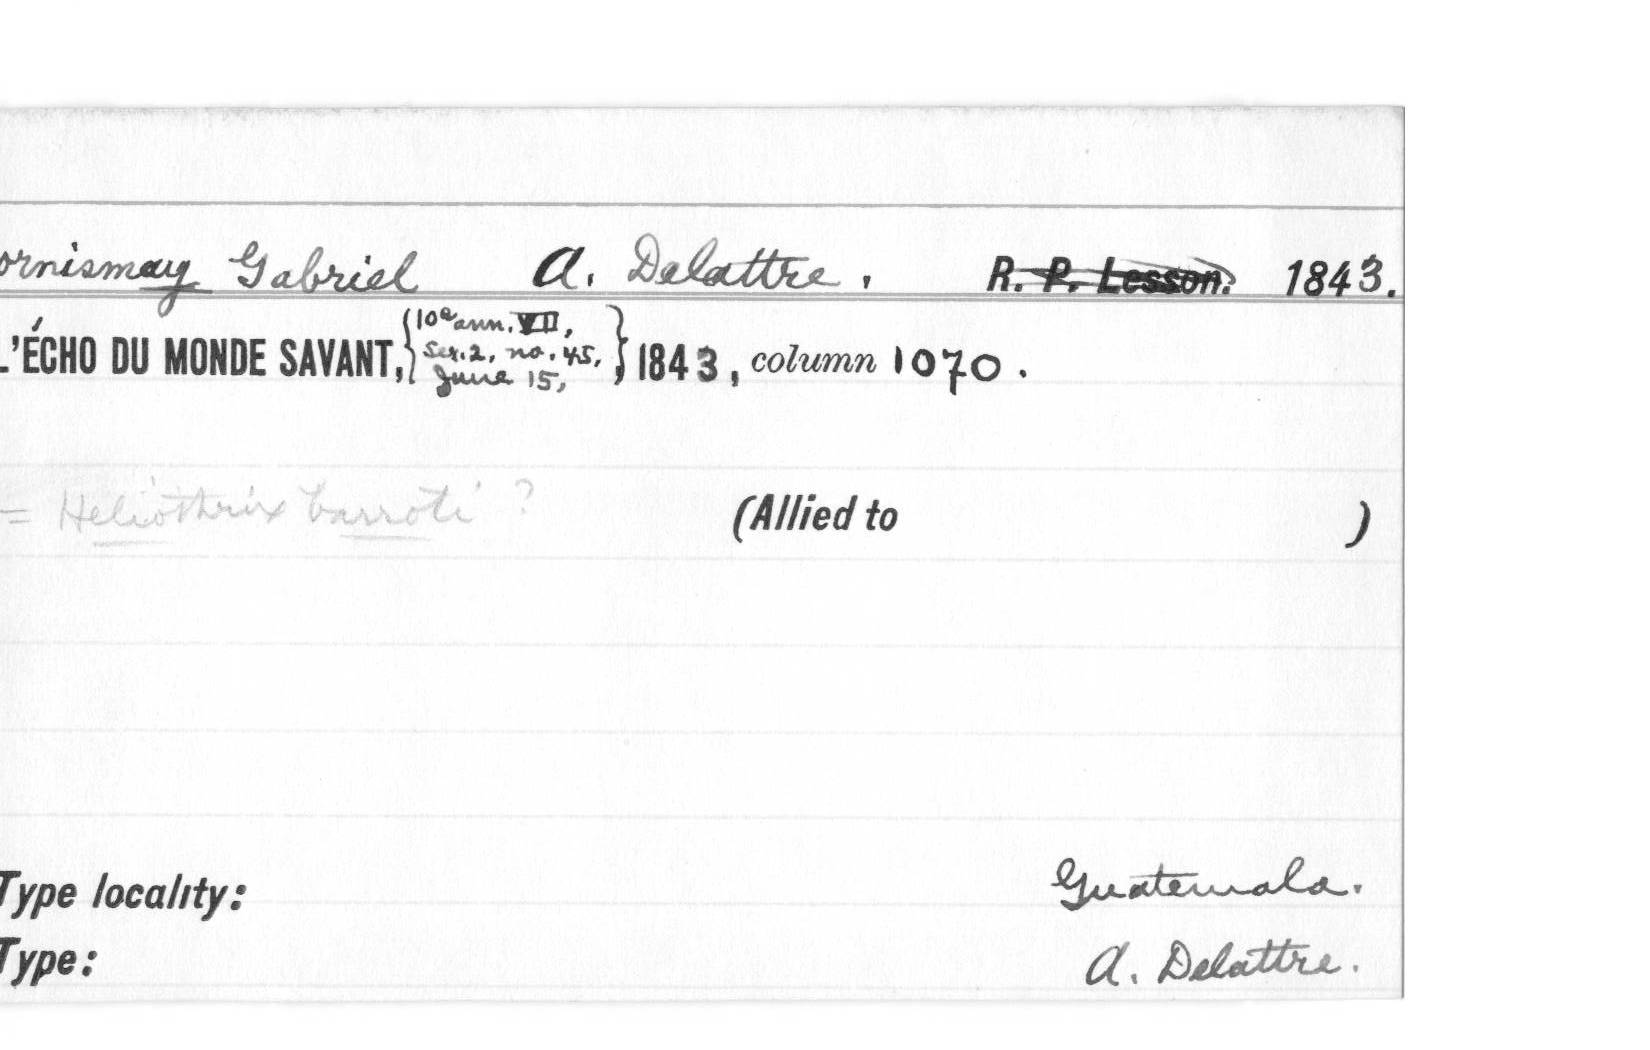 ornismay Gabriel A. Delattre. R. P. Lesson. 1843.
L'ÉCHO DU MONDE SAVANT, {10e ann. VII,
Ser. 2, no. 45,
June 15,} 1843, column 1070.
= Heliothrix barroti ? (Allied to )
Type locality: Guatemala.
Type: A. Delattre.